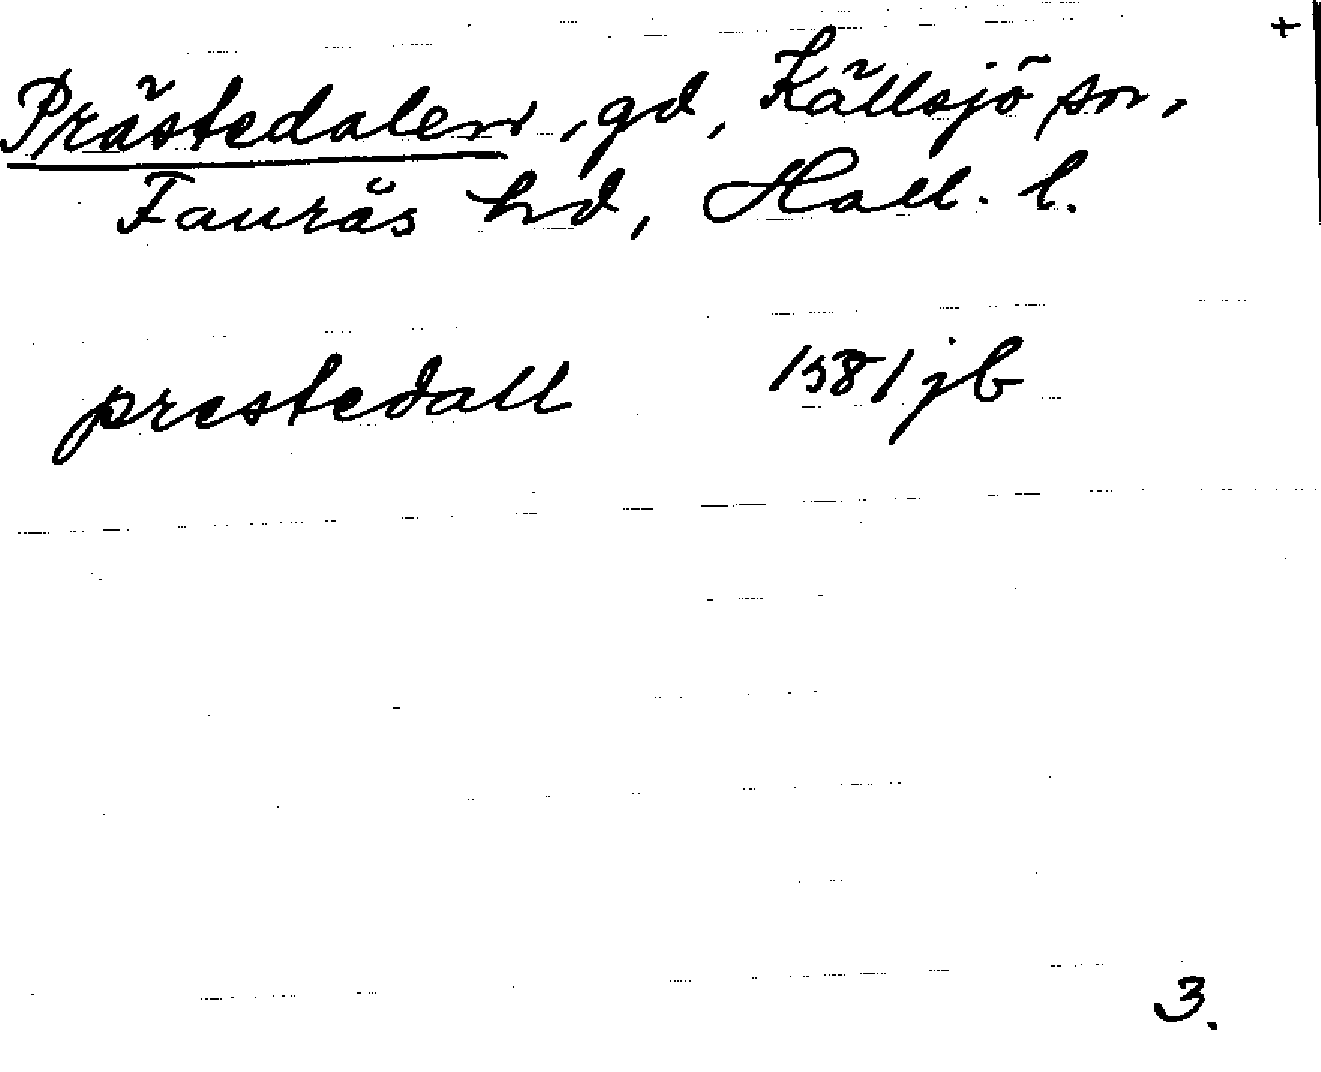 +
Prästedalen, gd, Källsjö sn,
Faurås hd, Hall. l.
prestedall 1581 jb
3.